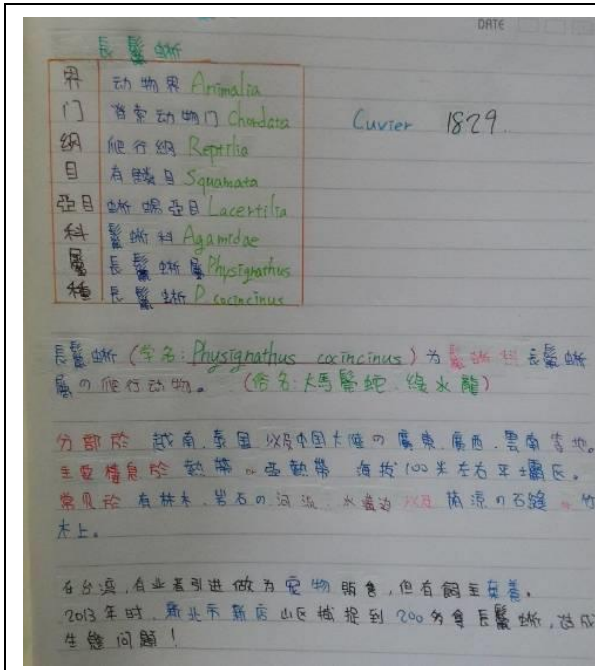 DATE
長鬣蜥
界 动物界 Animalia
门 脊索动物门 Chordata
Cuvier 1829.
纲 爬行纲 Reptilia
目 有鱗目 Squamata
亞目 蜥蜴亞目 Lacertilia
科 鬣蜥科 Agamidae
屬 長鬣蜥屬 Physignathus
種 長鬣蜥 P. cocincinus
長鬣蜥 (学名: Physignathus cocincinus) 为 鬣蜥科 長鬣蜥
屬の爬行动物。 (俗名: 大馬鬃蛇. 綠水龍)
分部於 越南. 泰国 以及中国大陸の廣東. 廣西. 雲南等地。
主要棲息於 熱帶 ~ 亚熱帶 海拔100米左右平壩区。
常見於 有林木. 岩石の河流. 水溝边以及 陰凉の石縫 ~ 竹
木上。
在台湾, 有业者引進做为宠物販售, 但有飼主弃養,
2013年时, 新北市新店山区捕捉到200多隻長鬣蜥, 造成
生態问题!